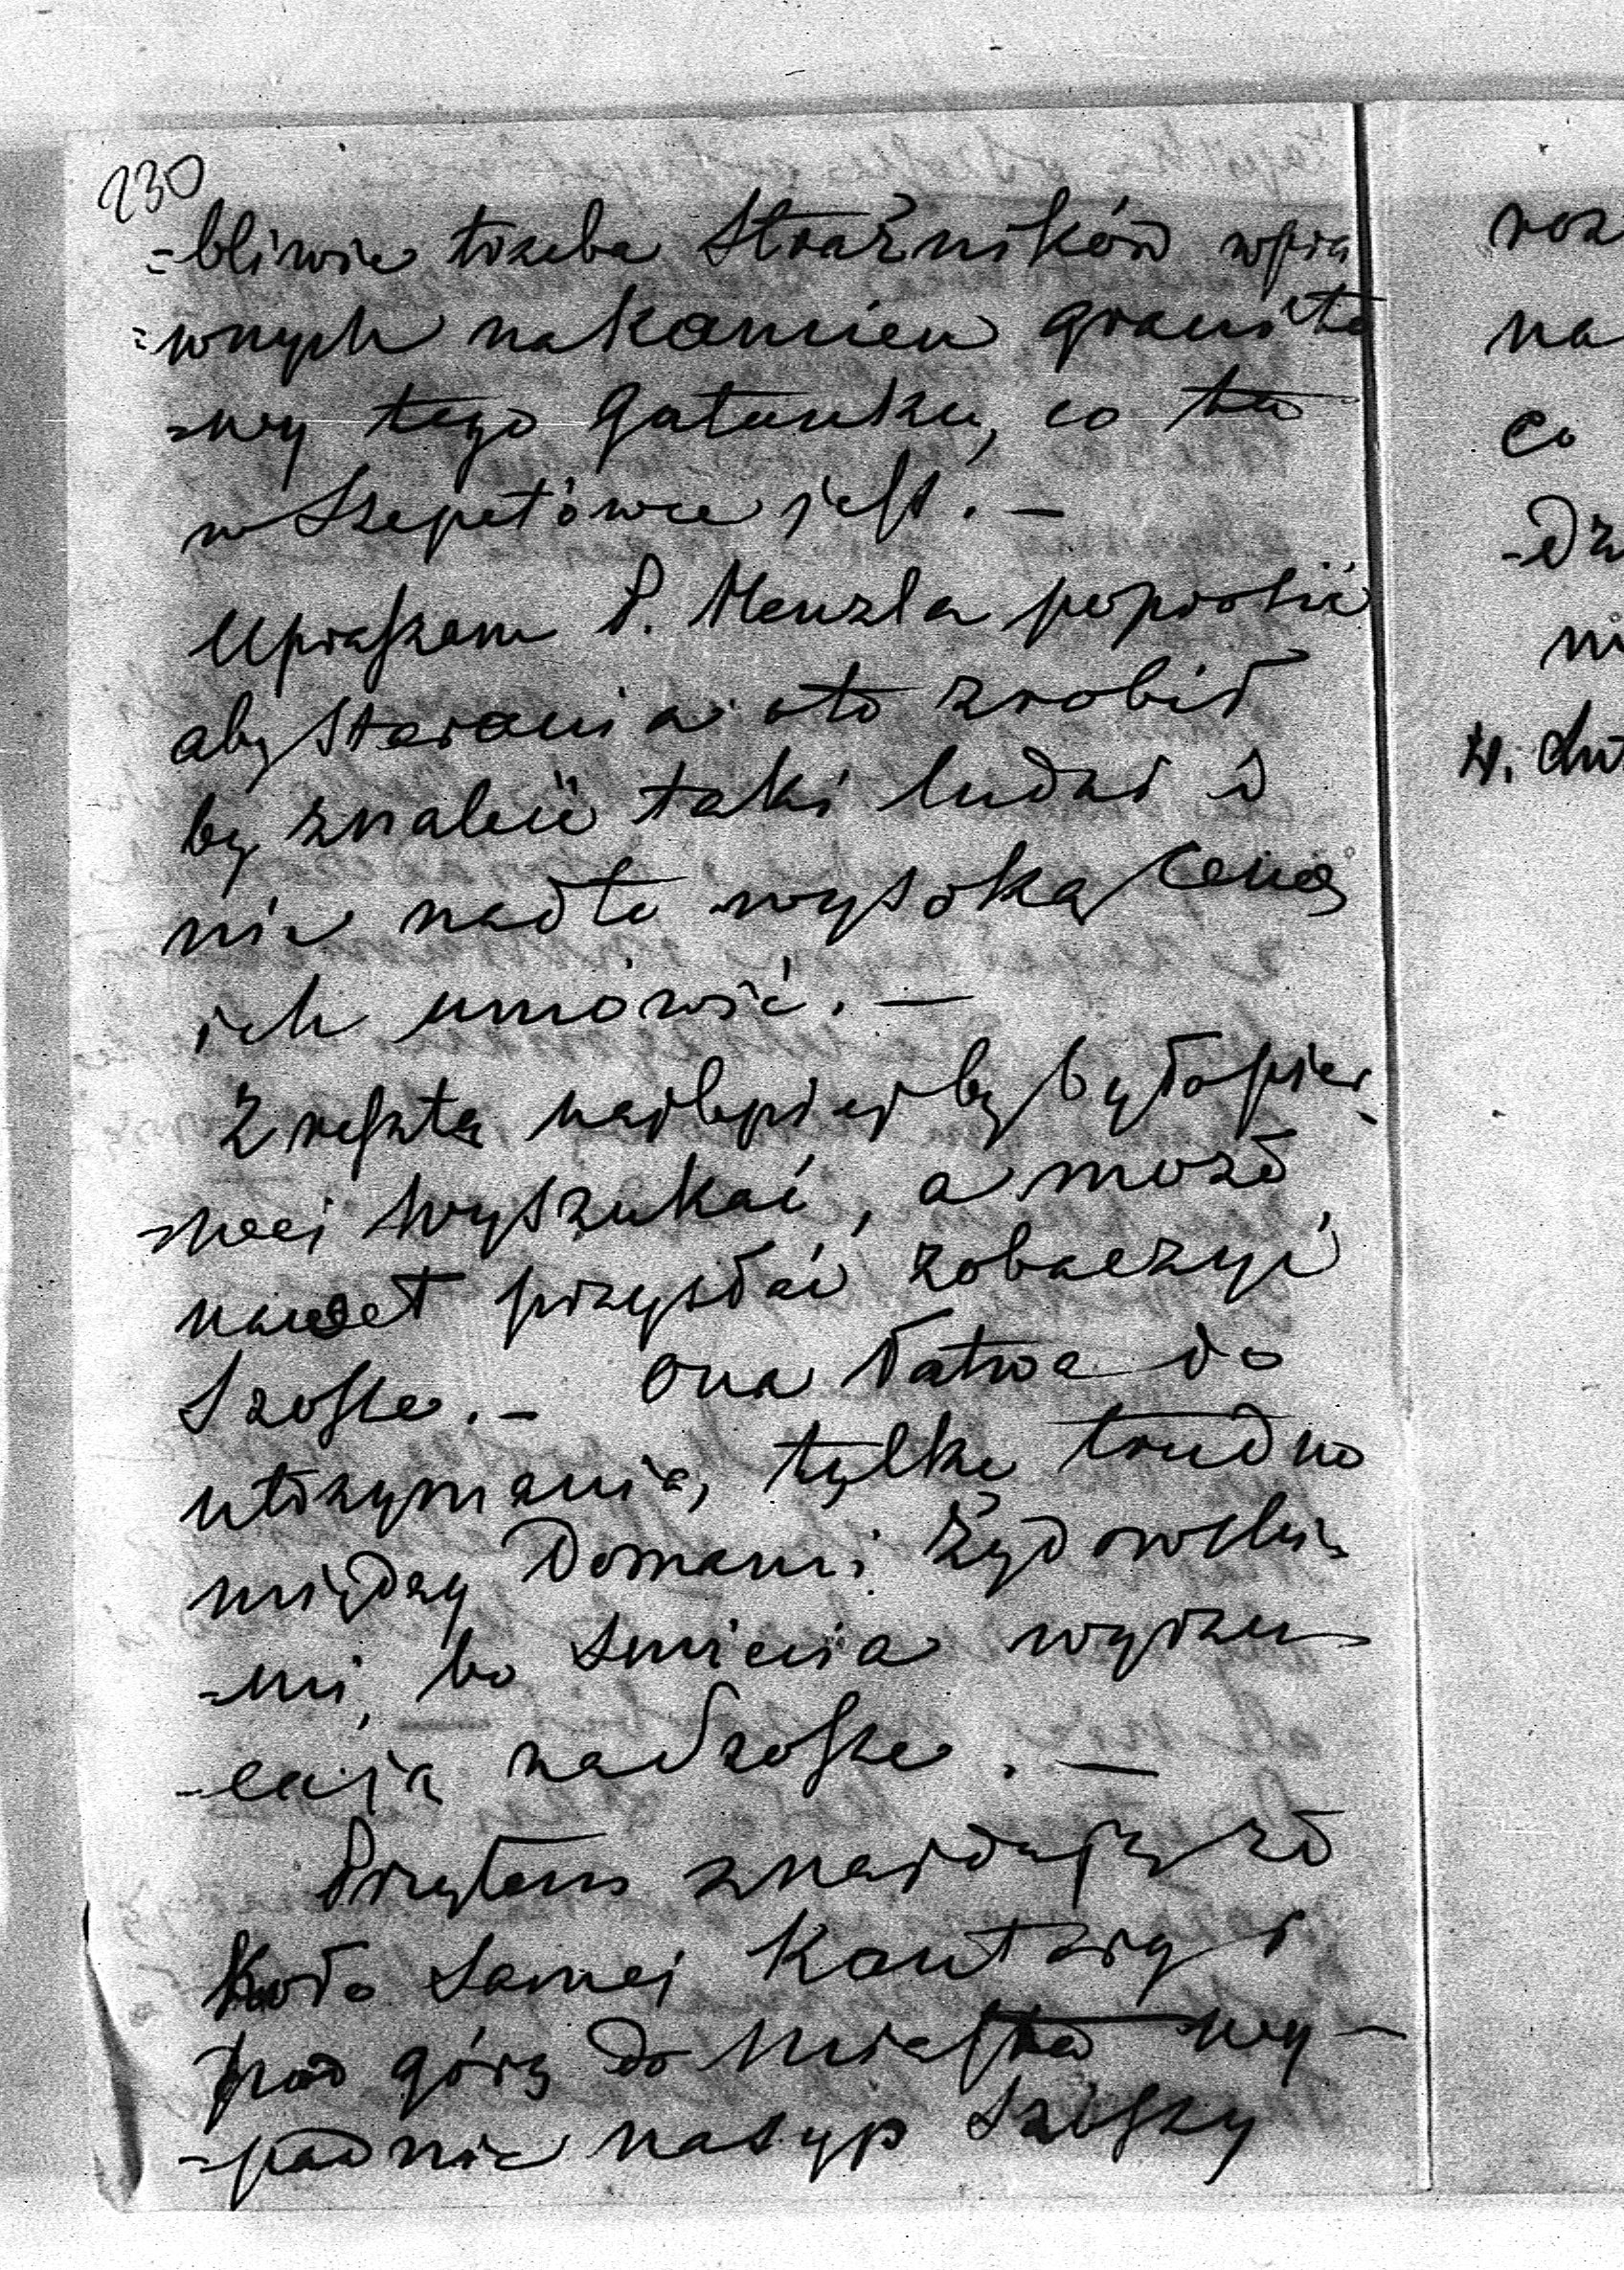 230
=bliwie trzeba Strażników wpra
=wnych na kamien granito
-wy tego gatunku, co tu
w Szepetówce jest. –
Upraszam P. Menzla poprosić
aby starania oto zrobił
by znaleść taki ludzi i
nie nadto wysoką cenę
ich umówić. –
Zresztą najlepiej by było pier
-wei wyszukać, a może
nawet przysłać zobaczyć
Szosse. – Ona łatwa do
utrzymania, tylko trudno
między Domami Żydowski
-mi, bo smiecia wyrzu
-cają na Szosse. –
Przytem znajduję że
koło samej Kantory i
pod górę do Miasta wy-
-padnie nasyp Szossy
roz
na
co
-dz
ni